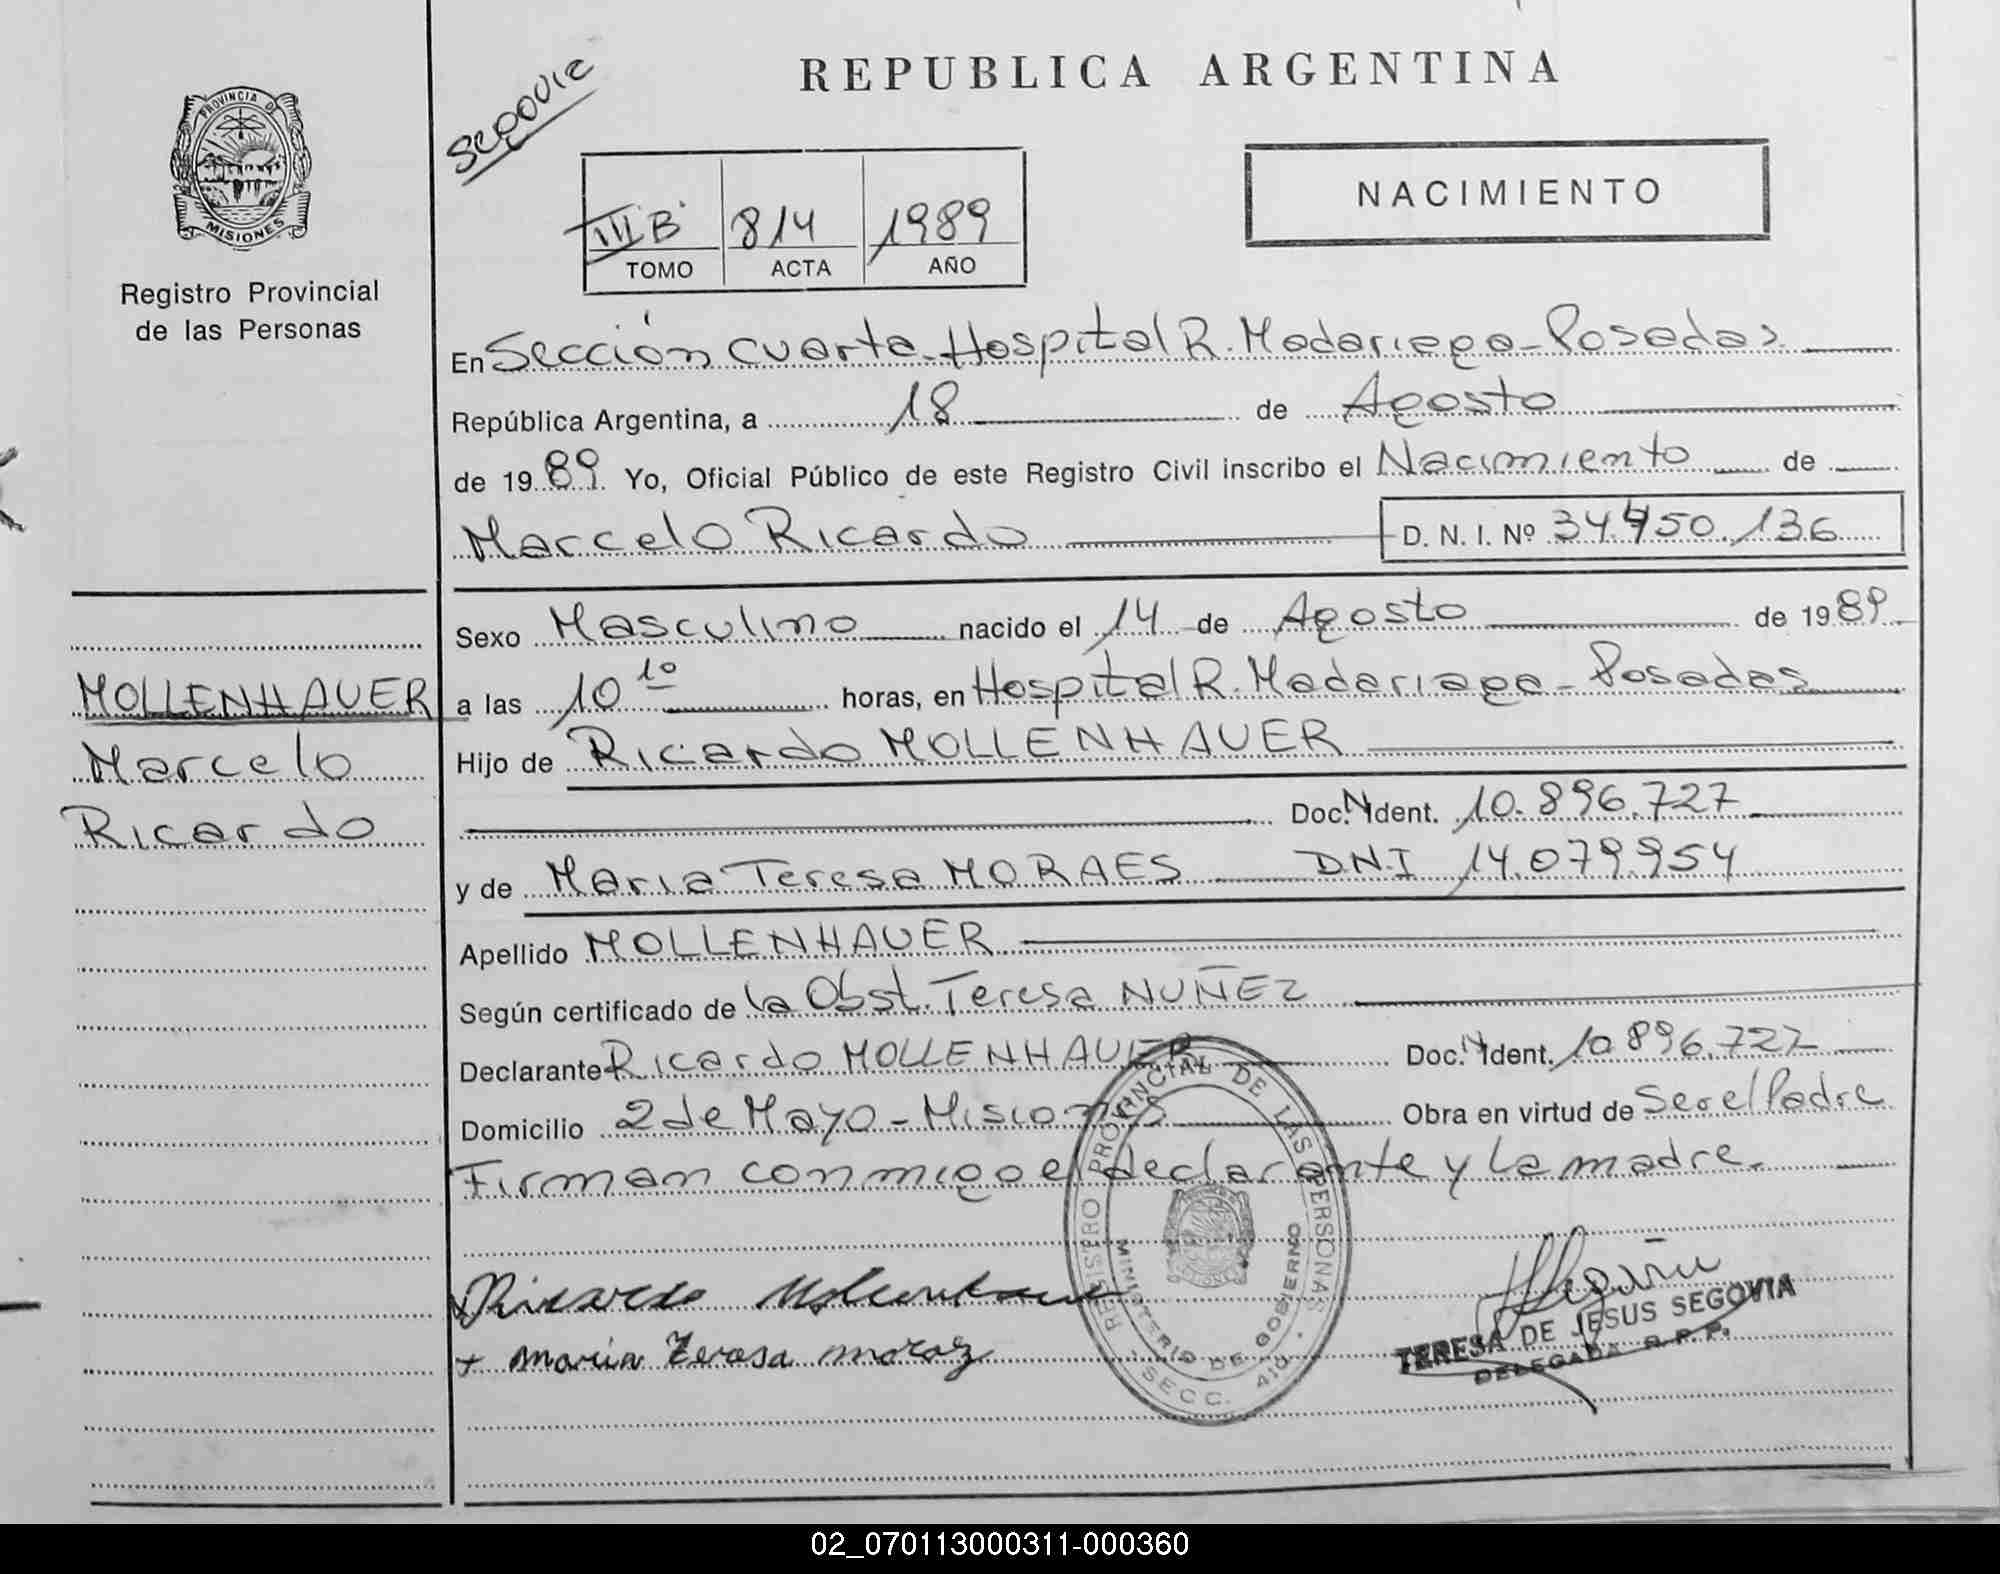 REPUBLICA ARGENTINA
Segovia
PROVINCIA DE
MISIONES
Registro Provincial
de las Personas
NACIMIENTO
III "B" 814 1989
TOMO ACTA AÑO
En Sección Cuarta-Hospital R. Madariaga-Posadas
República Argentina, a 18 de Agosto
de 1989 Yo, Oficial Público de este Registro Civil inscribo el Nacimiento de
Marcelo Ricardo D. N. I. Nº 34.450.136
Sexo Masculino nacido el 14 de Agosto de 1989
a las 10 10 horas, en Hospital R. Madariaga-Posadas
Hijo de Ricardo MOLLENHAUER
Doc. N Ident. 10.896.727
y de Maria Teresa MORAES DNI 14.079.954
Apellido MOLLENHAUER
Según certificado de la Obst. Teresa NUÑEZ
Declarante Ricardo MOLLENHAUER Doc. N Ident. 10.896.727
Domicilio 2 de Mayo-Misiones Obra en virtud de Ser el Padre
Firman conmigo el declarante y la madre.
MOLLENHAUER
Marcelo
Ricardo
Ricardo Mollenhauer
+ Maria Teresa moraz
REGISTRO PROVINCIAL DE LAS PERSONAS
MINISTERIO DE GOBIERNO
SECC. 4
TERESA DE JESUS SEGOVIA
DELEGADA R.P.P.
02_070113000311-000360